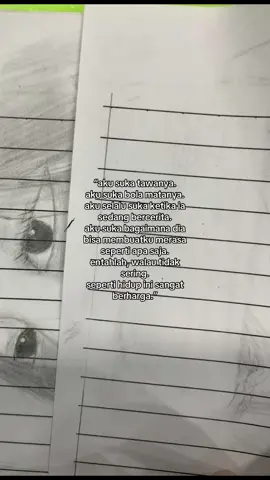 "aku suka tawanya.
aku suka bola matanya.
aku selalu suka ketika ia
sedang bercerita.
aku suka bagaimana dia
bisa membuatku merasa
seperti apa saja.
entahlah, walau tidak
sering.
seperti hidup ini sangat
berharga."